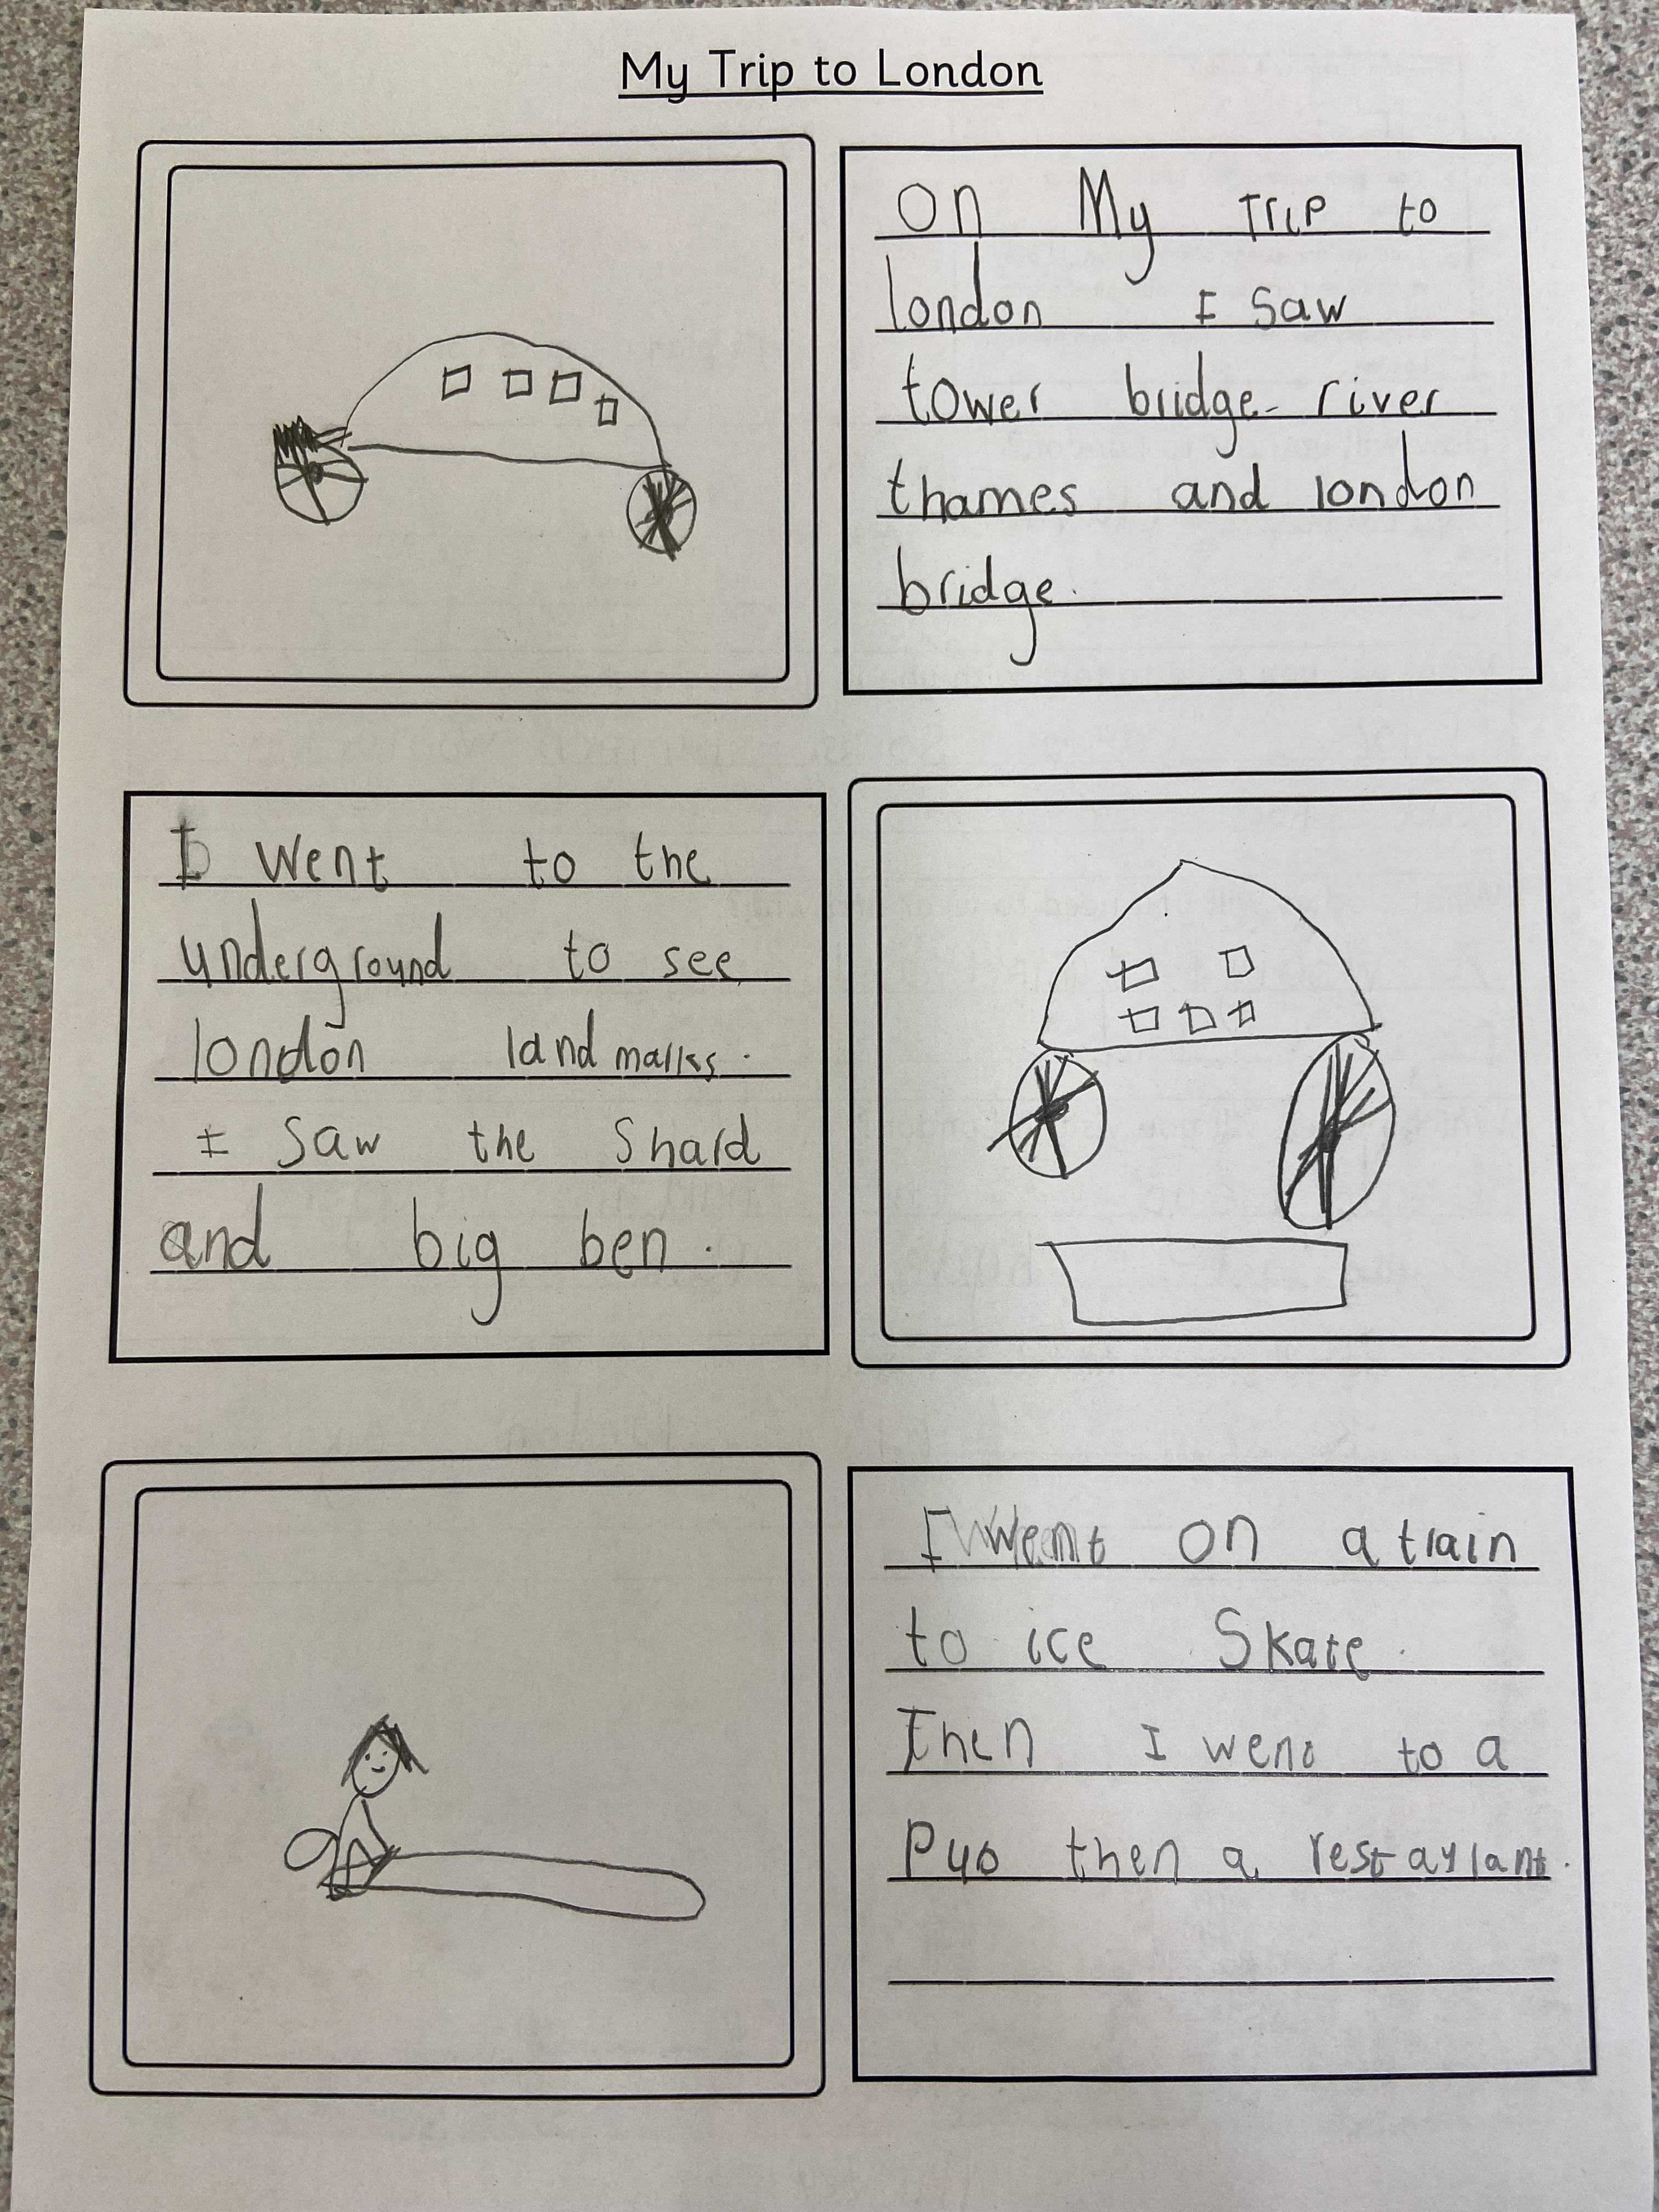 My Trip to London
On My Trip to
london I saw
tower bridge river
thames and london
bridge.
I went to the
underground to see
london land marks.
I saw the Shard
and big ben.
I went on a train
to ice Skate.
Then I went to a
Pub then a restaurant.